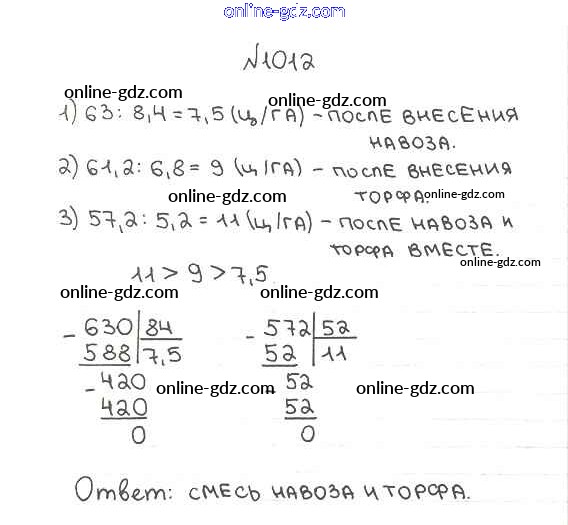 online-gdz.com
№1012
online-gdz.com
online-gdz.com
1) 63 : 8,4 = 7,5 (ц/га) - после внесения
навоза.
2) 61,2 : 6,8 = 9 (ц/га) - после внесения
online-gdz.com
торфа.
online-gdz.com
3) 57,2 : 5,2 = 11 (ц/га) - после навоза и
торфа вместе.
online-gdz.com
11 > 9 > 7,5.
online-gdz.com
online-gdz.com
- 630 84
588 7,5
- 420
420
0
- 572 52
52 11
- 52
52
0
online-gdz.com
online-gdz.com
Ответ: смесь навоза и торфа.